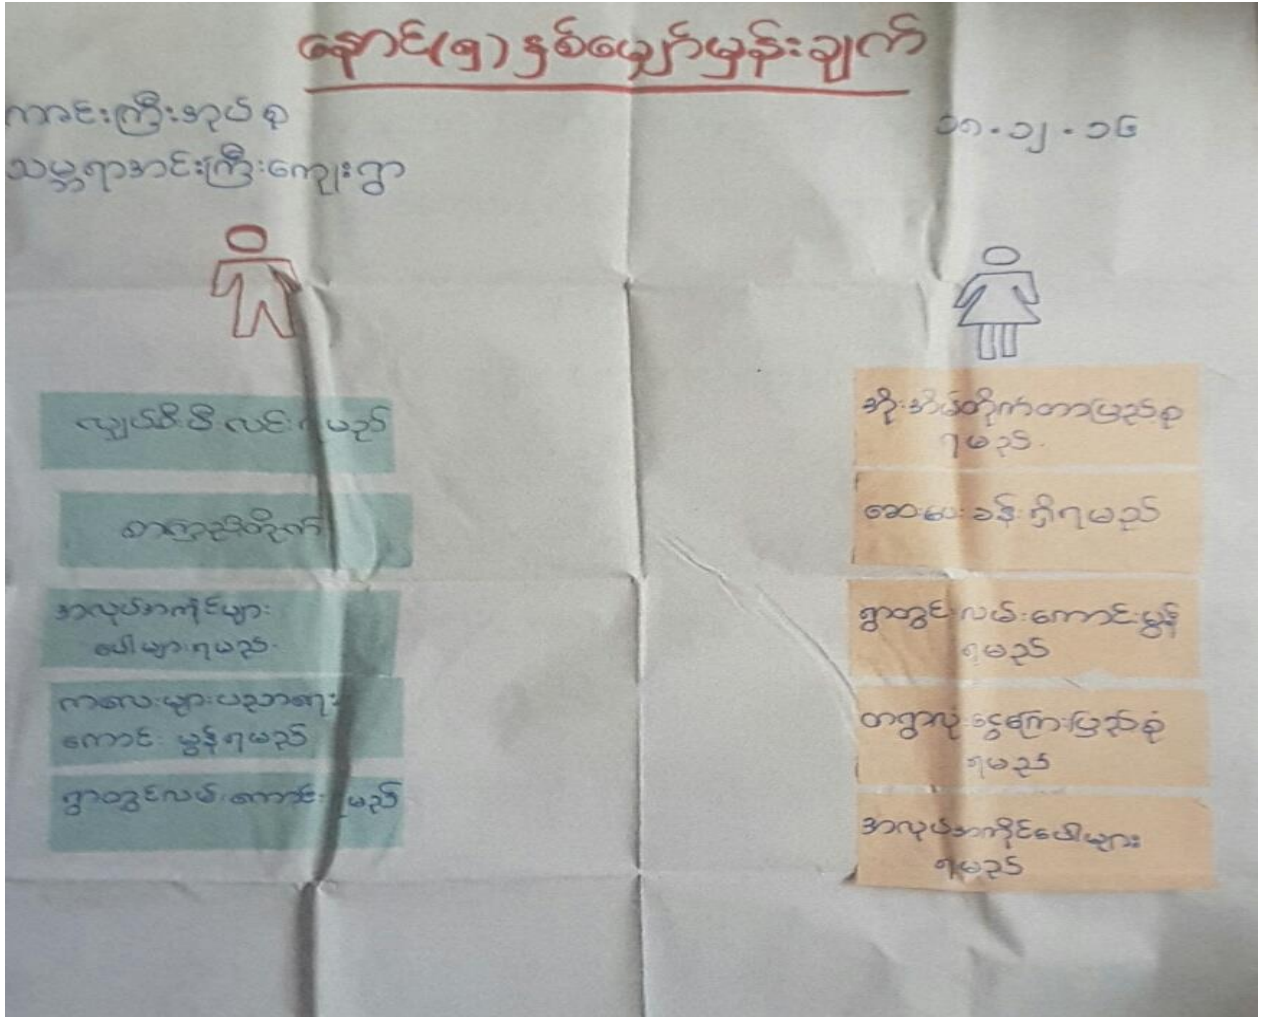 နောင်(၅)နှစ်မျှော်မှန်းချက်
ကင်းကြီးအုပ်စု
သမ္ဘရာအင်းကြီးကျေးရွာ
၁၈.၁၂.၁၆
လျှပ်စစ်မီးလင်းရမည်
စာကြည့်တိုက်
အလုပ်အကိုင်များ
ပေါများရမည်.
ကလေးများပညာရေး
ကောင်းမွန်ရမည်
ရွာတွင်းလမ်းကောင်းရမည်
အိုးအိမ်တိုက်တာပြည့်စုံ
ရမည်.
ဆေးပေးခန်းရှိရမည်
ရွာတွင်းလမ်းကောင်းမွန်
ရမည်
တရွာလုံးငွေကြေးပြည့်စုံ
ရမည်
အလုပ်အကိုင်ပေါများ
ရမည်